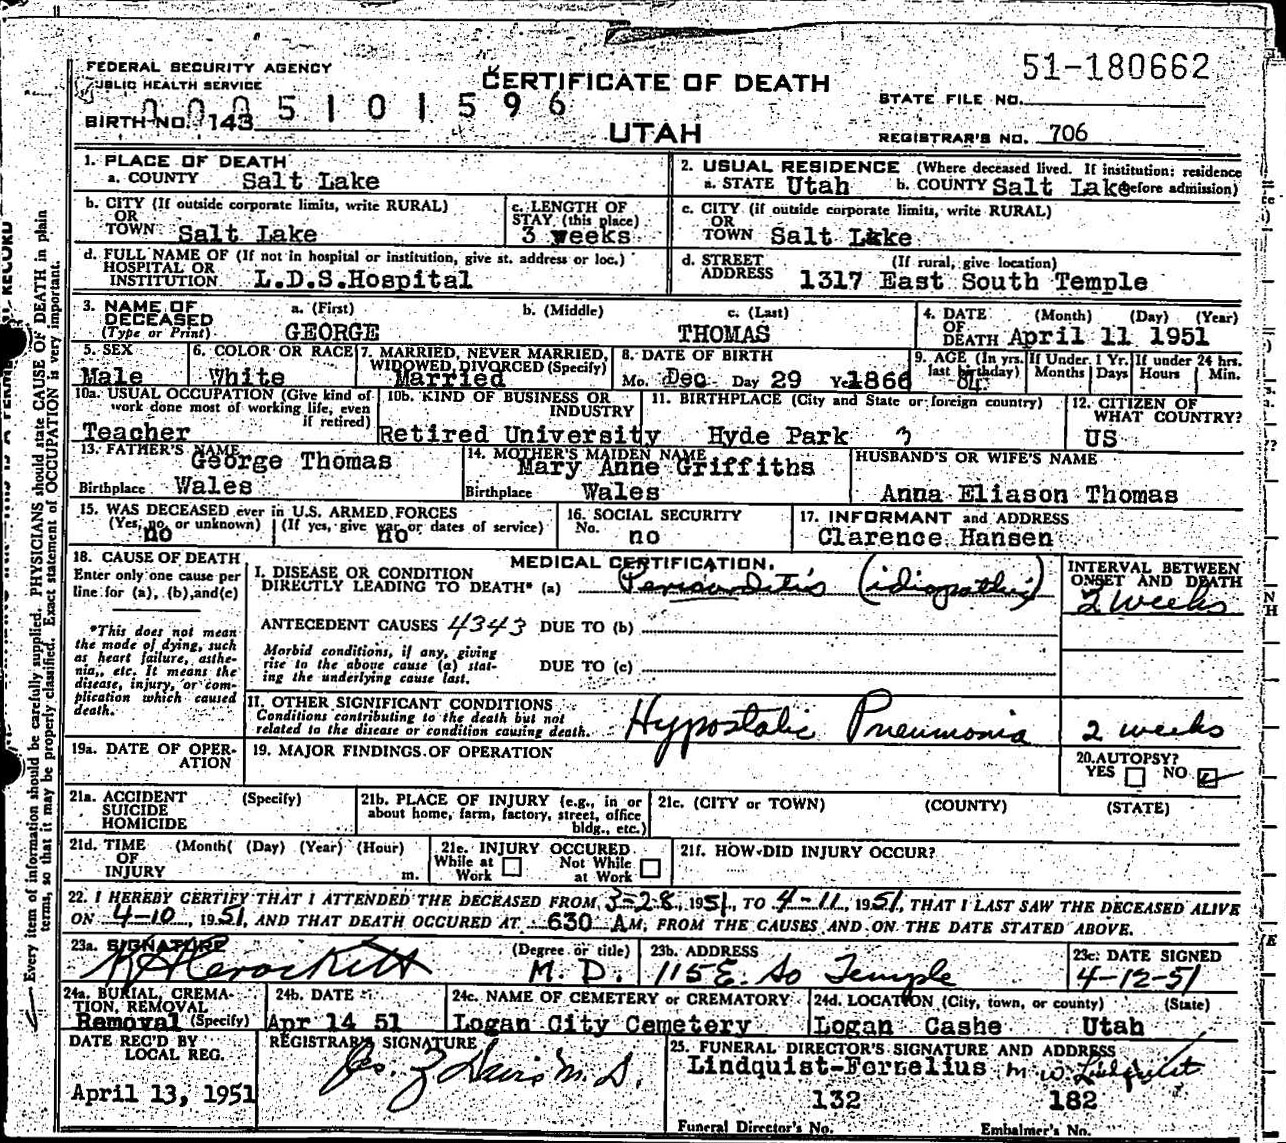 51-180662
FEDERAL SECURITY AGENCY
PUBLIC HEALTH SERVICE
CERTIFICATE OF DEATH
STATE FILE NO.
5101596
BIRTH NO. 143
UTAH
REGISTRAR'S NO. 706
1. PLACE OF DEATH
a. COUNTY Salt Lake
2. USUAL RESIDENCE (Where deceased lived. If institution: residence before admission)
a. STATE Utah b. COUNTY Salt Lake
b. CITY (If outside corporate limits, write RURAL)
OR
TOWN Salt Lake
c. LENGTH OF
STAY (this place)
3 weeks
c. CITY (if outside corporate limits, write RURAL)
OR
TOWN Salt Lake
d. FULL NAME OF (If not in hospital or institution, give st. address or loc.)
HOSPITAL OR
INSTITUTION L.D.S.Hospital
d. STREET (If rural, give location)
ADDRESS 1317 East South Temple
3. NAME OF
DECEASED
(Type or Print)
a. (First) b. (Middle) c. (Last)
GEORGE THOMAS
4. DATE (Month) (Day) (Year)
OF
DEATH April 11 1951
5. SEX
Male
6. COLOR OR RACE
White
7. MARRIED, NEVER MARRIED,
WIDOWED, DIVORCED (Specify)
Married
8. DATE OF BIRTH
Mo. Dec Day 29 Yr 1866
9. AGE (In yrs.
last birthday)
84
If Under 1 Yr.
Months Days
If under 24 hrs.
Hours Min.
10a. USUAL OCCUPATION (Give kind of
work done most of working life, even
if retired)
Teacher
10b. KIND OF BUSINESS OR
INDUSTRY
Retired University
11. BIRTHPLACE (City and State or foreign country)
Hyde Park 3
12. CITIZEN OF
WHAT COUNTRY?
US
13. FATHER'S NAME
George Thomas
Birthplace Wales
14. MOTHER'S MAIDEN NAME
Mary Anne Griffiths
Birthplace Wales
HUSBAND'S OR WIFE'S NAME
Anna Eliason Thomas
15. WAS DECEASED ever in U.S. ARMED FORCES
(Yes, no, or unknown) (If yes, give war or dates of service)
no no
16. SOCIAL SECURITY
No. no
17. INFORMANT and ADDRESS
Clarence Hansen
18. CAUSE OF DEATH
Enter only one cause per
line for (a), (b), and (c)
*This does not mean
the mode of dying, such
as heart failure, asthe-
nia, etc. It means the
disease, injury, or com-
plication which caused
death.
MEDICAL CERTIFICATION
I. DISEASE OR CONDITION
DIRECTLY LEADING TO DEATH* (a) Pericarditis (idiopathic)
ANTECEDENT CAUSES 4343 DUE TO (b)
Morbid conditions, if any, giving
rise to the above cause (a) stat-
ing the underlying cause last.
DUE TO (c)
INTERVAL BETWEEN
ONSET AND DEATH
2 weeks
II. OTHER SIGNIFICANT CONDITIONS
Conditions contributing to the death but not
related to the disease or condition causing death.
Hypostatic Pneumonia 2 weeks
19a. DATE OF OPER-
ATION
19. MAJOR FINDINGS OF OPERATION
20. AUTOPSY?
YES NO
21a. ACCIDENT (Specify)
SUICIDE
HOMICIDE
21b. PLACE OF INJURY (e.g., in or
about home, farm, factory, street, office
bldg., etc.)
21c. (CITY or TOWN) (COUNTY) (STATE)
21d. TIME (Month( (Day) (Year) (Hour)
OF
INJURY m.
21e. INJURY OCCURED
While at Work Not While at Work
21f. HOW DID INJURY OCCUR?
22. I HEREBY CERTIFY THAT I ATTENDED THE DECEASED FROM 3-28, 1951, TO 4-11, 1951, THAT I LAST SAW THE DECEASED ALIVE
ON 4-10, 1951, AND THAT DEATH OCCURED AT 630 AM, FROM THE CAUSES AND ON THE DATE STATED ABOVE.
23a. SIGNATURE (Degree or title)
Crockett M.D.
23b. ADDRESS
115 E. So Temple
23c: DATE SIGNED
4-12-51
24a. BURIAL, CREMA-
TION, REMOVAL
Removal (Specify)
24b. DATE
Apr 14 51
24c. NAME OF CEMETERY or CREMATORY
Logan City Cemetery
24d. LOCATION (City, town, or county) (State)
Logan Cashe Utah
DATE REC'D BY
LOCAL REG.
April 13, 1951
REGISTRAR'S SIGNATURE
25. FUNERAL DIRECTOR'S SIGNATURE AND ADDRESS
Lindquist-Forcelius M W Lindquist
132 182
Funeral Director's No. Embalmer's No.
Every item of information should be carefully supplied. PHYSICIANS should state CAUSE OF DEATH in plain
terms, so that it may be properly classified. Exact statement of OCCUPATION is very important.